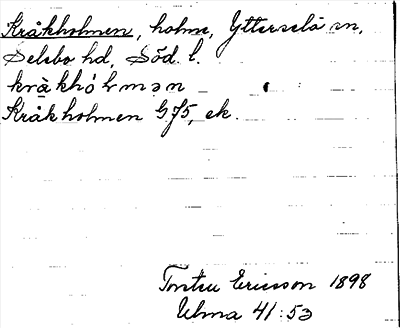 Kråkholmen, holme, Ytterselö sn,
Selebo hd, Söd. l.
kråkhólmən
Kråkholmen G75, ek.
Torsten Ericsson 1898
Ulma 41:53